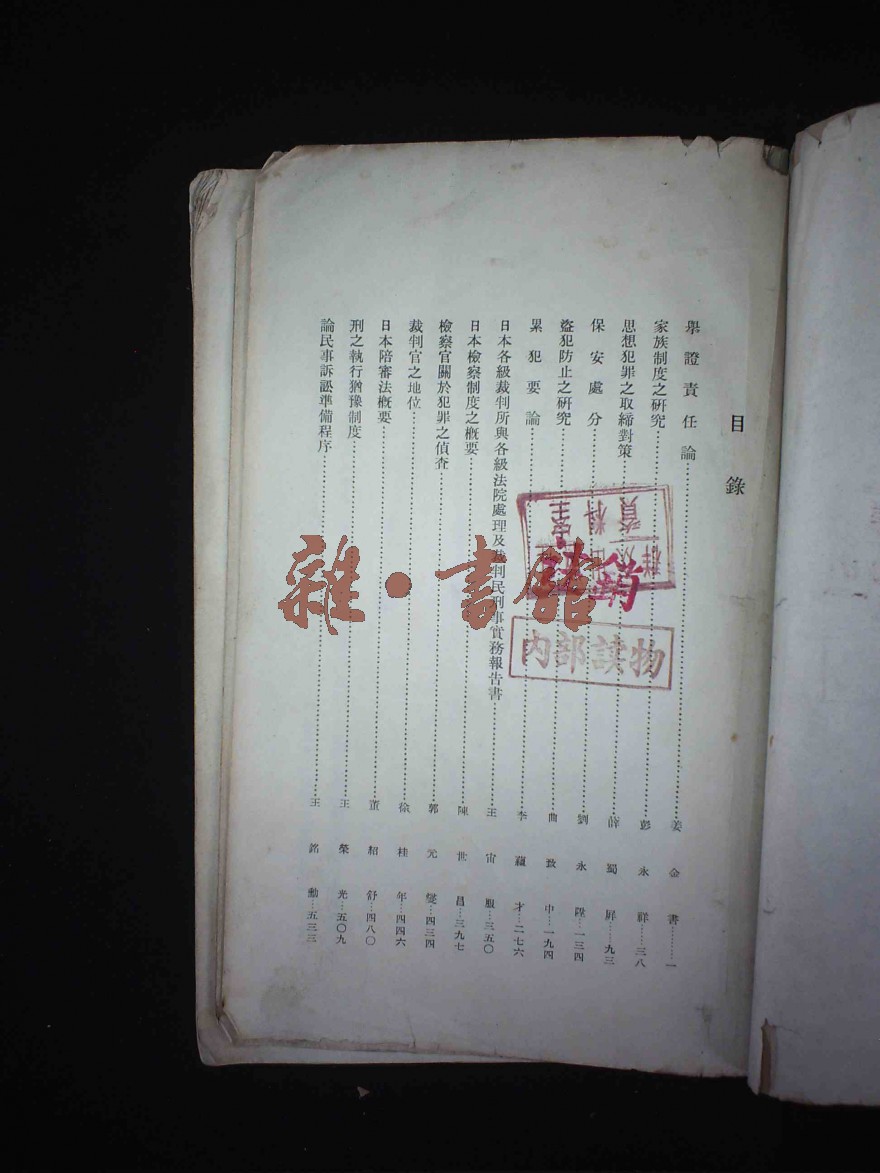 目錄
舉證責任論……姜金書……一
家族制度之硏究……彭永祥……三八
思想犯罪之取締對策……薛蜀屛……九三
保安處分……劉永陞……一三四
盜犯防止之硏究……曲致中……一九四
累犯要論……李蘊才……二七六
日本各級裁判所與各級法院處理及裁判民刑事實務報告書……王宙服……三五〇
日本檢察制度之概要……陳世昌……三九七
檢察官關於犯罪之偵査……郭元燮……四三四
裁判官之地位……徐桂年……四四六
日本陪審法概要……董紹舒……四八〇
刑之執行猶豫制度……王榮光……五〇九
論民事訴訟準備程序……王銘勳……五三三
資料室
注銷
内部读物
雜·書館